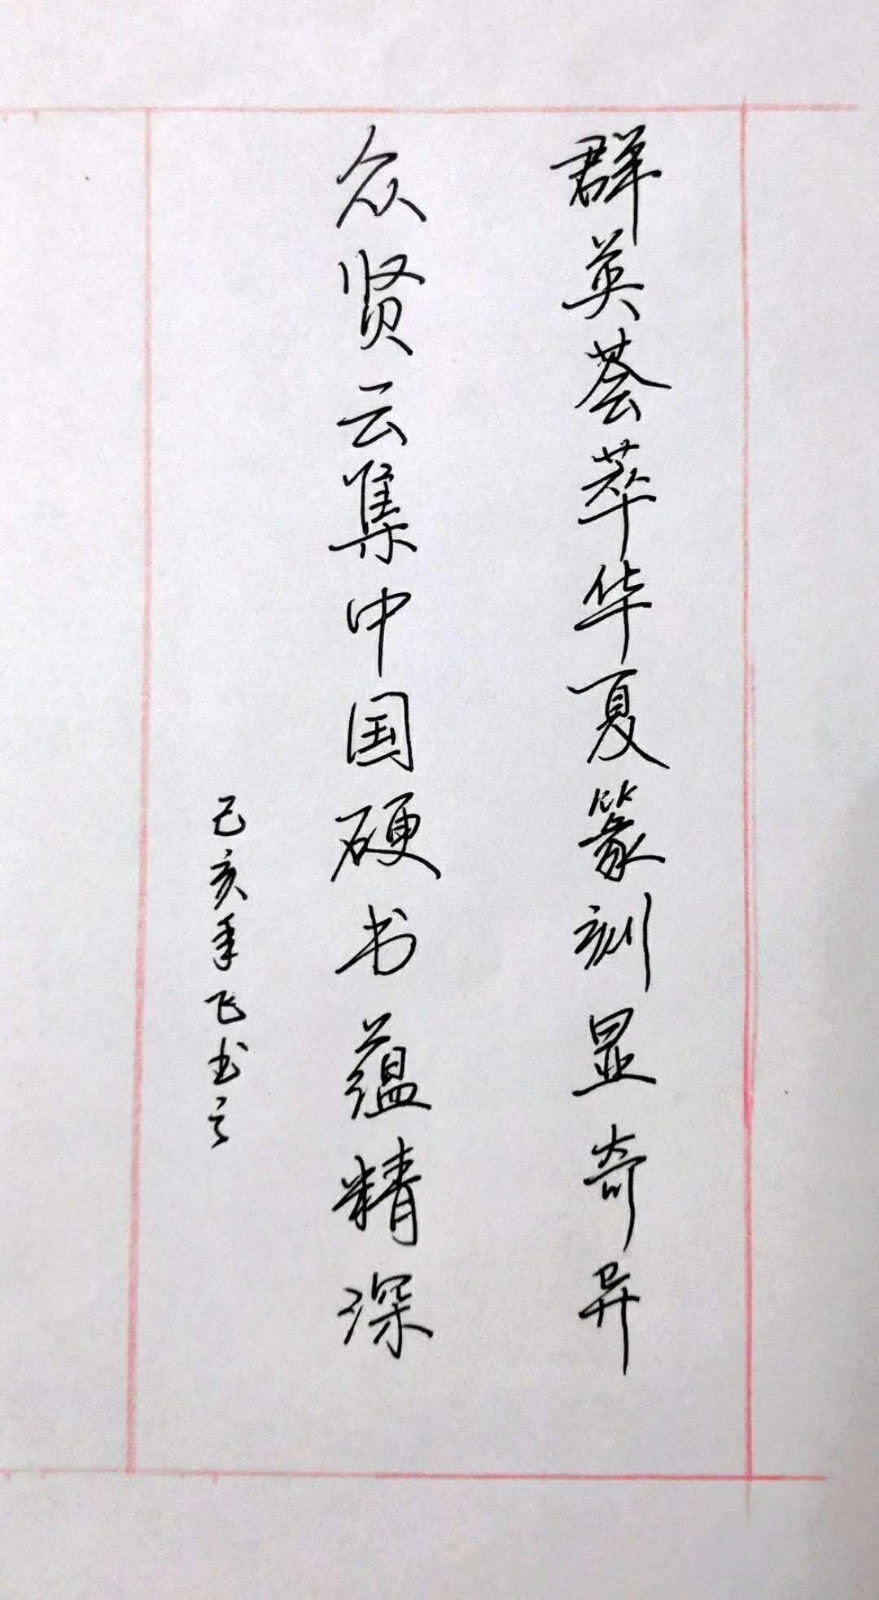 群英荟萃华夏篆刻显奇异
众贤云集中国硬书蕴精深
己亥年飞书之